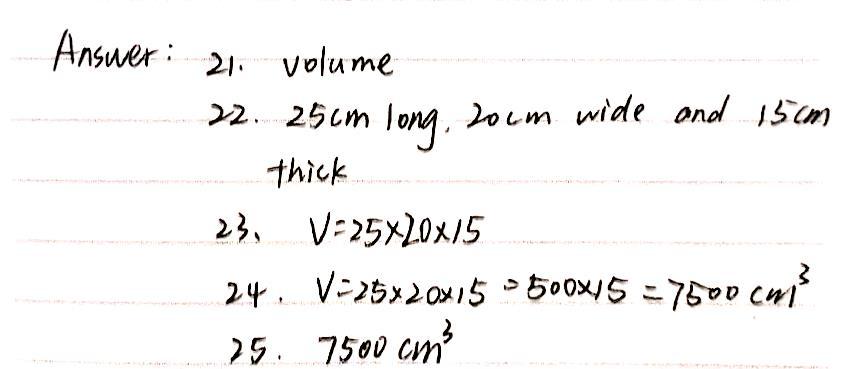 Answer: 21. volume
22. 25cm long, 20cm wide and 15cm
thick
23. V=25×20×15
24. V=25×20×15=500×15=7500 cm³
25. 7500 cm³